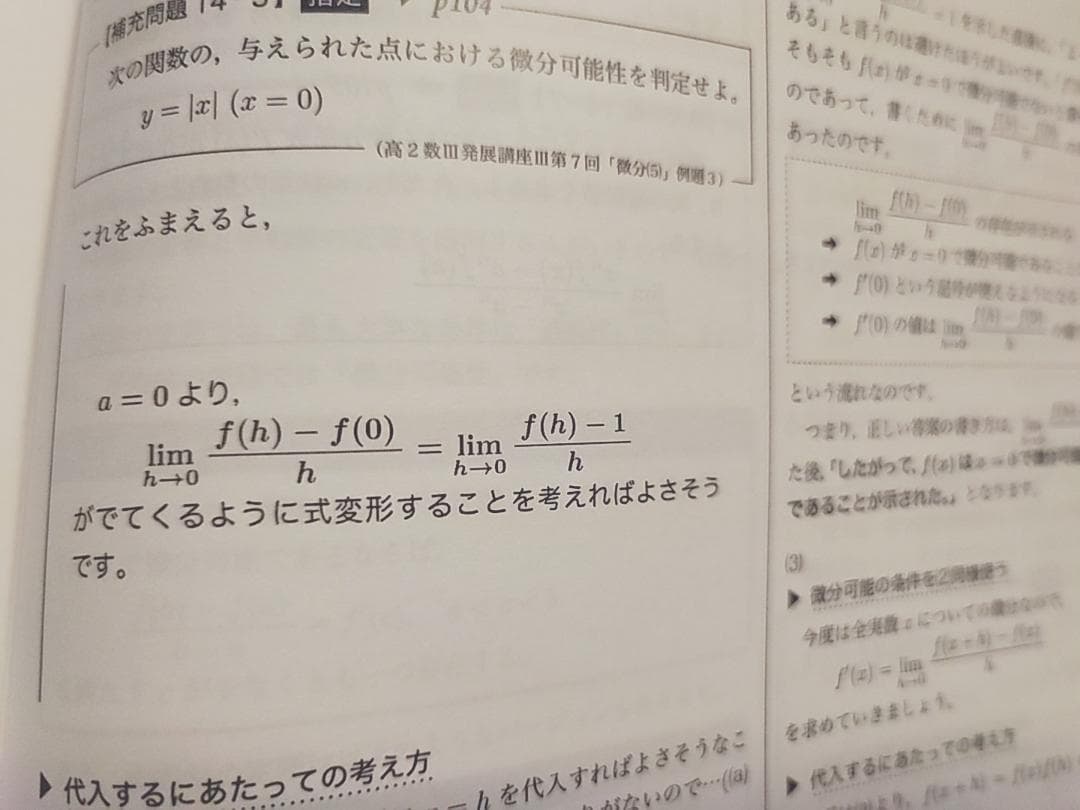 【補充問題
p104
次の関数の，与えられた点における微分可能性を判定せよ。
y = |x| (x = 0)
(高２数Ⅲ発展講座Ⅲ第７回「微分(5)」例題３)
これをふまえると，
a = 0 より，
lim h→0 f(h) − f(0) / h = lim h→0 f(h) − 1 / h
がでてくるように式変形することを考えればよさそう
です。
▶ 代入するにあたっての考え方
h を代入すればよさそうなこ
がないので…((a)
ある」と言うのは避けたほうがよいです。
そもそも f(x) が x = 0 で微分可能
のであって，書くために lim h→0
あったのです。
lim h→0 f(h) − f(0) / h
➔ f(x) が x = 0 で微分可能であること
➔ f′(0) という記号が使えるようになる
➔ f′(0) の値は lim h→0 f(h) − f(0) / h
という流れなのです。
つまり，正しい答案の書き方は， lim h→0
た後，「したがって，f(x) は x = 0 で微分可能
であることが示された。」となります。
(3)
▶ 微分可能の条件を2回使う
今度は全実数 x についての微分なので，
f′(x) = lim h→0 f(x + h) − f(x) / h
を求めていきましょう。
▶ 代入するにあたっての考え方